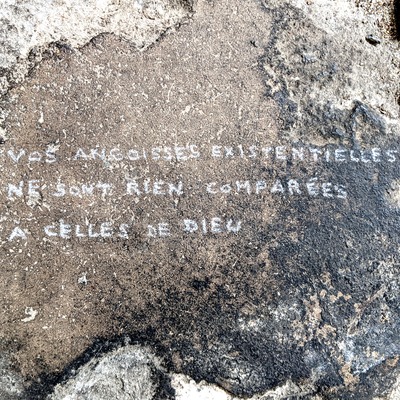 VOS ANGOISSES EXISTENTIELLES
NE SONT RIEN COMPARÉES
A CELLES DE DIEU